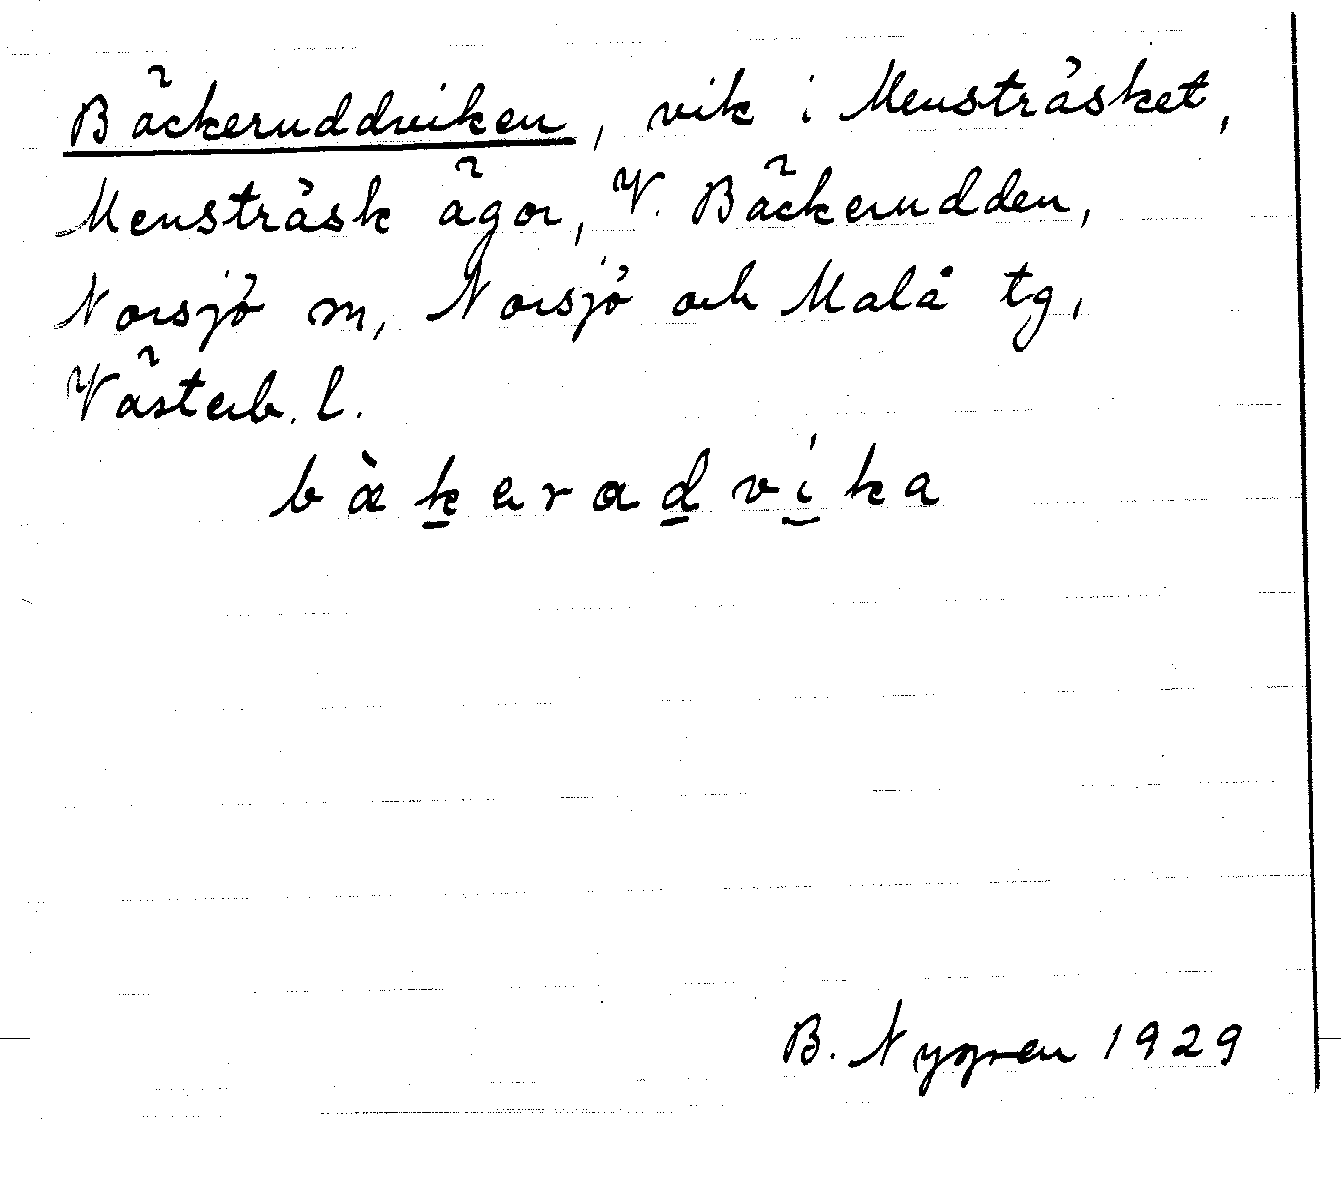 Bäckeruddviken, vik i Mensträsket,
Mensträsk ägor, V. Bäckerudden,
Norsjö m, Norsjö och Malå tg,
Västerb. l.
bæ̀k̲erad̲vi̲ka
B. Nygren 1929